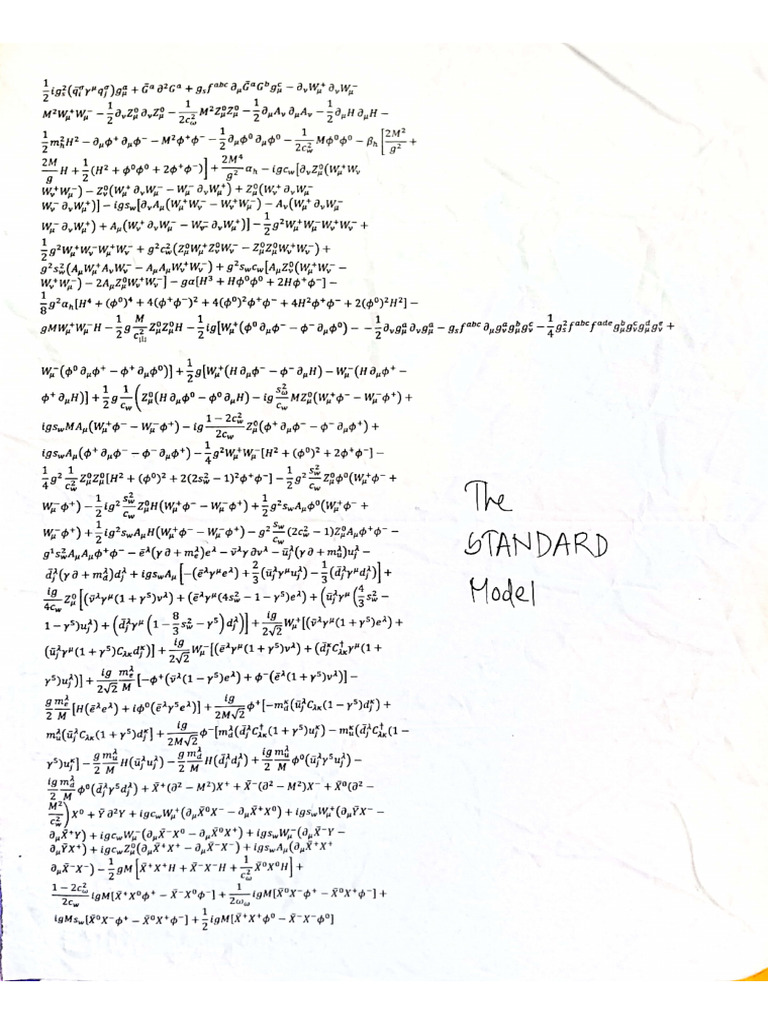 ½ig_s²(q̄_i^σ γ^μ q_j^σ)g_μ^a + Ḡ^a ∂²G^a + g_s f^{abc} ∂_μ Ḡ^a G^b g_μ^c − ∂_ν W_μ^+ ∂_ν W_μ^-
M²W_μ^+ W_μ^- − ½∂_ν Z_μ^0 ∂_ν Z_μ^0 − 1/(2c_ω²) M²Z_μ^0 Z_μ^0 − ½∂_μ A_ν ∂_μ A_ν − ½∂_μ H ∂_μ H −
½m_h²H² − ∂_μ ϕ^+ ∂_μ ϕ^- − M²ϕ^+ϕ^- − ½∂_μ ϕ^0 ∂_μ ϕ^0 − 1/(2c_w²) Mϕ^0ϕ^0 − β_h [2M²/g² +
2M/g H + ½(H² + ϕ^0ϕ^0 + 2ϕ^+ϕ^-)] + 2M⁴/g² α_h − igc_w[∂_ν Z_μ^0(W_μ^+ W_ν
W_ν^+ W_μ^-) − Z_ν^0(W_μ^+ ∂_ν W_μ^- − W_μ^- ∂_ν W_μ^+) + Z_μ^0(W_ν^+ ∂_ν W_μ^-
W_ν^- ∂_ν W_μ^+)] − igs_w[∂_ν A_μ(W_μ^+ W_ν^- − W_ν^+ W_μ^-) − A_ν(W_μ^+ ∂_ν W_μ^-
W_μ^- ∂_ν W_μ^+) + A_μ(W_ν^+ ∂_ν W_μ^- − W_ν^- ∂_ν W_μ^+)] − ½g²W_μ^+ W_μ^- W_ν^+ W_ν^- +
½g²W_μ^+ W_ν^- W_μ^+ W_ν^- + g²c_w²(Z_μ^0 W_μ^+ Z_ν^0 W_ν^- − Z_μ^0 Z_μ^0 W_ν^+ W_ν^-) +
g²s_w²(A_μ W_μ^+ A_ν W_ν^- − A_μ A_μ W_ν^+ W_ν^-) + g²s_w c_w[A_μ Z_ν^0(W_μ^+ W_ν^- −
W_ν^+ W_μ^-) − 2A_μ Z_μ^0 W_ν^+ W_ν^-] − gα[H³ + Hϕ^0ϕ^0 + 2Hϕ^+ϕ^-] −
⅛g²α_h[H⁴ + (ϕ^0)⁴ + 4(ϕ^+ϕ^-)² + 4(ϕ^0)²ϕ^+ϕ^- + 4H²ϕ^+ϕ^- + 2(ϕ^0)²H²] −
gMW_μ^+ W_μ^- H − ½g M/c_w² Z_μ^0 Z_μ^0 H − ½ig[W_μ^+(ϕ^0 ∂_μ ϕ^- − ϕ^- ∂_μ ϕ^0) − − ½∂_ν g_μ^a ∂_ν g_μ^a − g_s f^{abc} ∂_μ g_ν^a g_μ^b g_ν^c − ¼g_s² f^{abc} f^{ade} g_μ^b g_ν^c g_μ^d g_ν^e +
W_μ^-(ϕ^0 ∂_μ ϕ^+ − ϕ^+ ∂_μ ϕ^0)] + ½g[W_μ^+(H ∂_μ ϕ^- − ϕ^- ∂_μ H) − W_μ^-(H ∂_μ ϕ^+ −
ϕ^+ ∂_μ H)] + ½g 1/c_w (Z_μ^0(H ∂_μ ϕ^0 − ϕ^0 ∂_μ H) − ig s_ω²/c_w MZ_μ^0(W_μ^+ϕ^- − W_μ^-ϕ^+) +
igs_w MA_μ(W_μ^+ϕ^- − W_μ^-ϕ^+) − ig (1 − 2c_w²)/(2c_w) Z_μ^0(ϕ^+ ∂_μ ϕ^- − ϕ^- ∂_μ ϕ^+) +
igs_w A_μ(ϕ^+ ∂_μ ϕ^- − ϕ^- ∂_μ ϕ^+) − ¼g²W_μ^+ W_μ^-[H² + (ϕ^0)² + 2ϕ^+ϕ^-] −
¼g² 1/c_w² Z_μ^0 Z_μ^0[H² + (ϕ^0)² + 2(2s_w² − 1)²ϕ^+ϕ^-] − ½g² s_w²/c_w Z_μ^0 ϕ^0(W_μ^+ϕ^- +
W_μ^-ϕ^+) − ½ig² s_w²/c_w Z_μ^0 H(W_μ^+ϕ^- − W_μ^-ϕ^+) + ½g²s_w A_μ ϕ^0(W_μ^+ϕ^- +
W_μ^-ϕ^+) + ½ig²s_w A_μ H(W_μ^+ϕ^- − W_μ^-ϕ^+) − g² s_w/c_w (2c_w² − 1)Z_μ^0 A_μ ϕ^+ϕ^- −
g¹s_w² A_μ A_μ ϕ^+ϕ^- − ē^λ(γ ∂ + m_e^λ)e^λ − ν̄^λ γ ∂ν^λ − ū_j^λ(γ ∂ + m_u^λ)u_j^λ −
d̄_j^λ(γ ∂ + m_d^λ)d_j^λ + igs_w A_μ [−(ē^λ γ^μ e^λ) + ⅔(ū_j^λ γ^μ u_j^λ) − ⅓(d̄_j^λ γ^μ d_j^λ)] +
ig/(4c_w) Z_μ^0 [(ν̄^λ γ^μ(1 + γ⁵)ν^λ) + (ē^λ γ^μ(4s_w² − 1 − γ⁵)e^λ) + (ū_j^λ γ^μ (4/3 s_w² −
1 − γ⁵)u_j^λ) + (d̄_j^λ γ^μ (1 − 8/3 s_w² − γ⁵) d_j^λ)] + ig/(2√2) W_μ^+[(ν̄^λ γ^μ(1 + γ⁵)e^λ) +
(ū_j^λ γ^μ(1 + γ⁵)C_{λκ} d_j^κ)] + ig/(2√2) W_μ^-[(ē^λ γ^μ(1 + γ⁵)ν^λ) + (d̄_j^κ C_{λκ}^† γ^μ(1 +
γ⁵)u_j^λ)] + ig/(2√2) m_e^λ/M [−ϕ^+(ν̄^λ(1 − γ⁵)e^λ) + ϕ^-(ē^λ(1 + γ⁵)ν^λ)] −
g/2 m_e^λ/M [H(ē^λ e^λ) + iϕ^0(ē^λ γ⁵ e^λ)] + ig/(2M√2) ϕ^+[−m_d^κ(ū_j^λ C_{λκ}(1 − γ⁵)d_j^κ) +
m_u^λ(ū_j^λ C_{λκ}(1 + γ⁵)d_j^κ] + ig/(2M√2) ϕ^-[m_d^λ(d̄_j^λ C_{λκ}^†(1 + γ⁵)u_j^κ) − m_u^κ(d̄_j^λ C_{λκ}^†(1 −
γ⁵)u_j^κ] − g/2 m_u^λ/M H(ū_j^λ u_j^λ) − g/2 m_d^λ/M H(d̄_j^λ d_j^λ) + ig/2 m_u^λ/M ϕ^0(ū_j^λ γ⁵ u_j^λ) −
ig/2 m_d^λ/M ϕ^0(d̄_j^λ γ⁵ d_j^λ) + X̄^+(∂² − M²)X^+ + X̄^-(∂² − M²)X^- + X̄^0(∂² −
M²/c_w²)X^0 + Ȳ ∂²Y + igc_w W_μ^+(∂_μ X̄^0X^- − ∂_μ X̄^+X^0) + igs_w W_μ^+(∂_μ ȲX^- −
∂_μ X̄^+Y) + igc_w W_μ^-(∂_μ X̄^-X^0 − ∂_μ X̄^0X^+) + igs_w W_μ^-(∂_μ X̄^-Y −
∂_μ ȲX^+) + igc_w Z_μ^0(∂_μ X̄^+X^+ − ∂_μ X̄^-X^-) + igs_w A_μ(∂_μ X̄^+X^+
∂_μ X̄^-X^-) − ½gM [X̄^+X^+H + X̄^-X^-H + 1/c_ω² X̄^0X^0H] +
(1 − 2c_ω²)/(2c_w) igM[X̄^+X^0ϕ^+ − X̄^-X^0ϕ^-] + 1/(2ω_ω) igM[X̄^0X^-ϕ^+ − X̄^0X^+ϕ^-] +
igMs_w[X̄^0X^-ϕ^+ − X̄^0X^+ϕ^-] + ½igM[X̄^+X^+ϕ^0 − X̄^-X^-ϕ^0]
The
STANDARD
Model